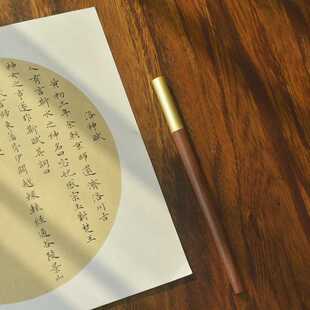 洛神賦
黃初三年余朝京師還濟洛川古
人有言斯水之神名曰宓妃感宋玉對楚王
神女之事遂作斯賦其詞曰
言歸東藩背伊闕越轘轅經通谷陵景山